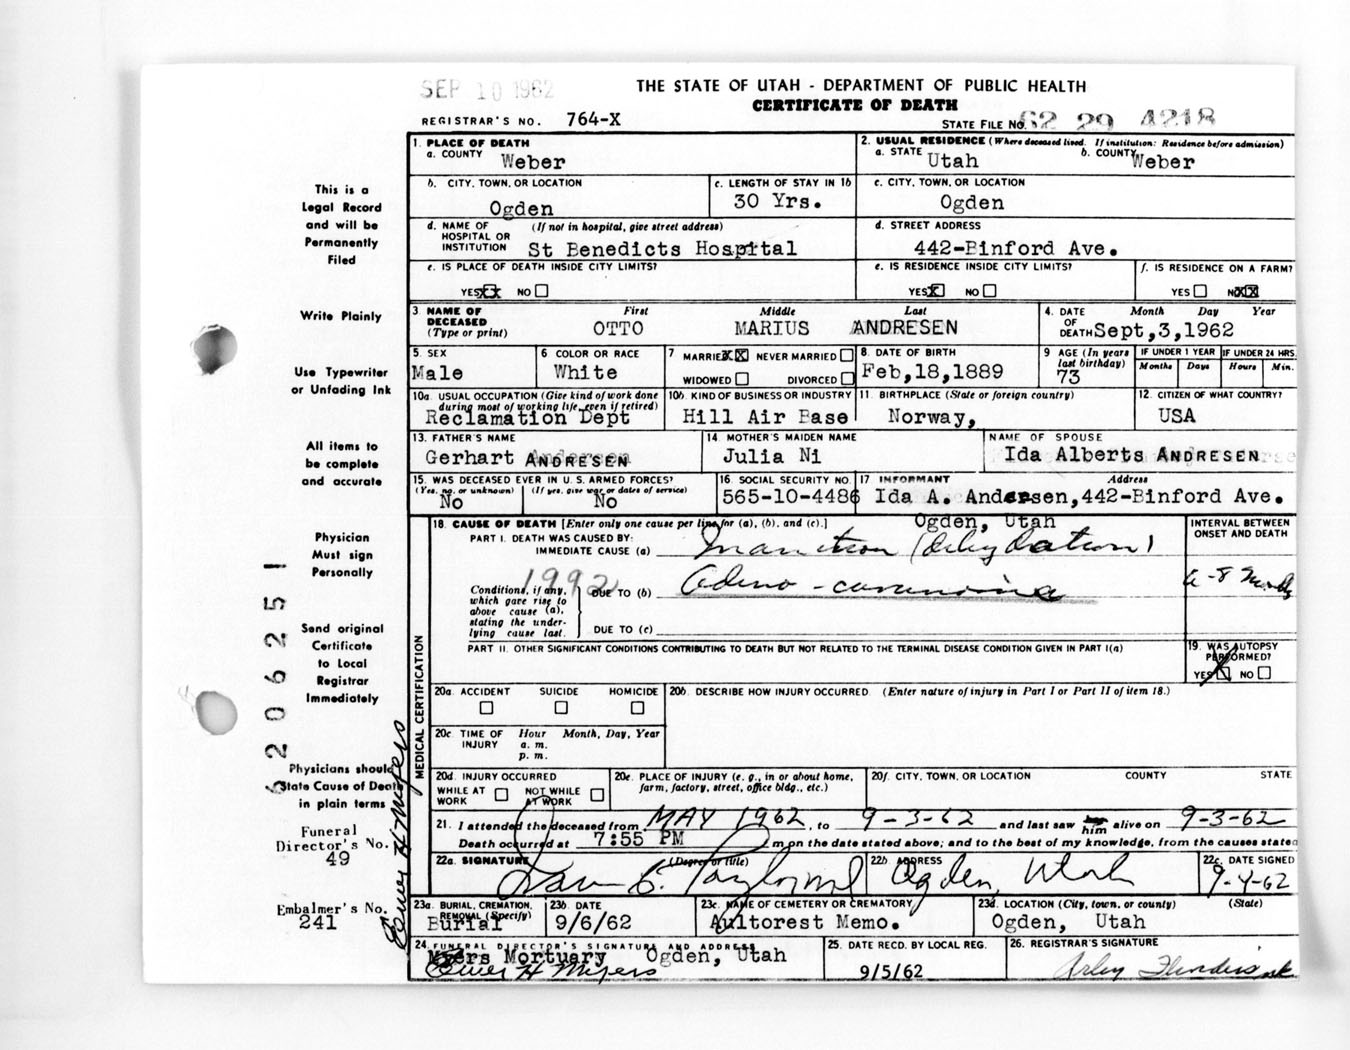 SEP 10 1962
THE STATE OF UTAH - DEPARTMENT OF PUBLIC HEALTH
CERTIFICATE OF DEATH
REGISTRAR'S NO. 764-X
STATE FILE NO. 62 29 4218
1. PLACE OF DEATH
a. COUNTY Weber
2. USUAL RESIDENCE (Where deceased lived. If institution: Residence before admission)
a. STATE Utah b. COUNTY Weber
b. CITY, TOWN, OR LOCATION
Ogden
c. LENGTH OF STAY IN 1b
30 Yrs.
c. CITY, TOWN, OR LOCATION
Ogden
d. NAME OF HOSPITAL OR INSTITUTION (If not in hospital, give street address)
St Benedicts Hospital
d. STREET ADDRESS
442-Binford Ave.
e. IS PLACE OF DEATH INSIDE CITY LIMITS?
YES XX NO
e. IS RESIDENCE INSIDE CITY LIMITS?
YES X NO
f. IS RESIDENCE ON A FARM?
YES NO XX
3. NAME OF DECEASED (Type or print)
First Middle Last
OTTO MARIUS ANDRESEN
4. DATE OF DEATH Month Day Year
Sept,3,1962
5. SEX
Male
6 COLOR OR RACE
White
7 MARRIED XX NEVER MARRIED
WIDOWED DIVORCED
8. DATE OF BIRTH
Feb,18,1889
9 AGE (In years last birthday)
73
IF UNDER 1 YEAR
Months Days
IF UNDER 24 HRS.
Hours Min.
10a. USUAL OCCUPATION (Give kind of work done during most of working life, even if retired)
Reclamation Dept
10b. KIND OF BUSINESS OR INDUSTRY
Hill Air Base
11. BIRTHPLACE (State or foreign country)
Norway,
12. CITIZEN OF WHAT COUNTRY?
USA
13. FATHER'S NAME
Gerhart ANDRESEN
14. MOTHER'S MAIDEN NAME
Julia Ni
NAME OF SPOUSE
Ida Alberts ANDRESEN
15. WAS DECEASED EVER IN U. S. ARMED FORCES?
(Yes, no, or unknown) (If yes, give war or dates of service)
No No
16. SOCIAL SECURITY NO.
565-10-4486
17 INFORMANT Address
Ida A. Andresen,442-Binford Ave.
Ogden, Utah
18. CAUSE OF DEATH [Enter only one cause per line for (a), (b), and (c).]
PART I. DEATH WAS CAUSED BY:
IMMEDIATE CAUSE (a) Inanition (dehydration)
INTERVAL BETWEEN ONSET AND DEATH
1992
Conditions, if any, which gave rise to above cause (a), stating the underlying cause last.
DUE TO (b) Adeno-carcinoma
6-8
DUE TO (c)
PART II. OTHER SIGNIFICANT CONDITIONS CONTRIBUTING TO DEATH BUT NOT RELATED TO THE TERMINAL DISEASE CONDITION GIVEN IN PART I(a)
19. WAS AUTOPSY PERFORMED?
YES X NO
MEDICAL CERTIFICATION
20a. ACCIDENT SUICIDE HOMICIDE
20b. DESCRIBE HOW INJURY OCCURRED. (Enter nature of injury in Part I or Part II of item 18.)
20c. TIME OF INJURY Hour Month, Day, Year
a. m.
p. m.
20d. INJURY OCCURRED
WHILE AT WORK NOT WHILE AT WORK
20e. PLACE OF INJURY (e. g., in or about home, farm, factory, street, office bldg., etc.)
20f. CITY, TOWN, OR LOCATION COUNTY STATE
21. I attended the deceased from MAY 1962, to 9-3-62 and last saw him alive on 9-3-62
Death occurred at 7:55 PM m on the date stated above; and to the best of my knowledge, from the causes stated
22a. SIGNATURE (Degree or title)
22b ADDRESS
Ogden, Utah
22c. DATE SIGNED
9-4-62
23a. BURIAL, CREMATION, REMOVAL (Specify)
Burial
23b. DATE
9/6/62
23c. NAME OF CEMETERY OR CREMATORY
Aultorest Memo.
23d. LOCATION (City, town, or county) (State)
Ogden, Utah
24. FUNERAL DIRECTOR'S SIGNATURE AND ADDRESS
Myers Mortuary Ogden, Utah
Elmer H Myers
25. DATE RECD. BY LOCAL REG.
9/5/62
26. REGISTRAR'S SIGNATURE
This is a
Legal Record
and will be
Permanently
Filed
Write Plainly
Use Typewriter
or Unfading Ink
All items to
be complete
and accurate
Physician
Must sign
Personally
Send original
Certificate
to Local
Registrar
Immediately
Physicians should
State Cause of Death
in plain terms
Funeral
Director's No.
49
Embalmer's No.
241
Elmer H Myers